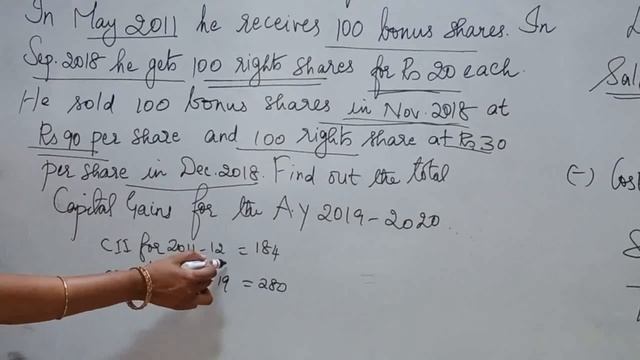 In May 2011 he receives 100 bonus shares. In
Sep. 2018 he gets 100 right shares for Rs 20 each.
He sold 100 bonus shares in Nov. 2018 at
Rs 90 per share and 100 rights share at Rs. 30
per share in Dec. 2018. Find out the total
Capital Gains for the A.Y 2019-2020.
CII for 2011-12 = 184
19 = 280
Sal
(-) Cos